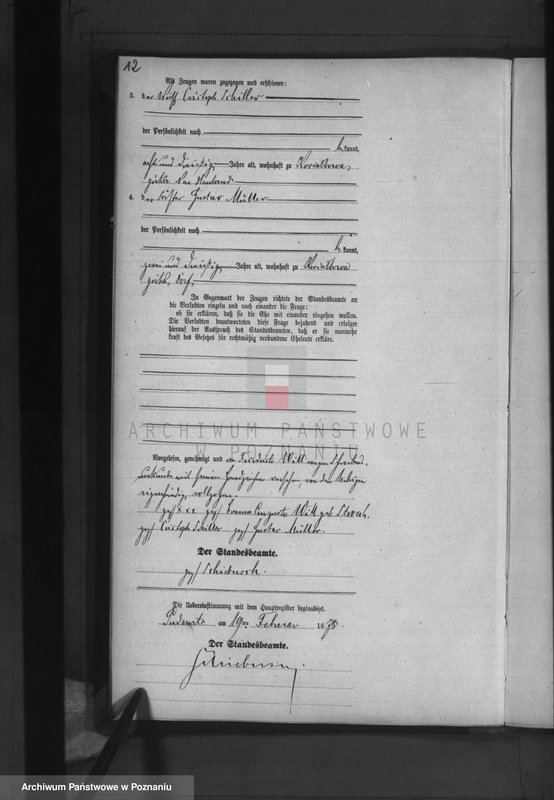 12
Als Zeugen waren zugezogen und erschienen:
3. der Wirth Christoph Schiller
der Persönlichkeit nach
be kannt,
acht und dreißig Jahre alt, wohnhaft zu
4. der Gustav Müller
der Persönlichkeit nach
be kannt,
zwei und dreißig Jahre alt, wohnhaft zu
In Gegenwart der Zeugen richtete der Standesbeamte an
die Verlobten einzeln und nach einander die Frage:
ob sie erklären, daß sie die Ehe mit einander eingehen wollen.
Die Verlobten beantworteten diese Frage bejahend und erfolgte
hierauf der Ausspruch des Standesbeamten, daß er sie nunmehr
kraft des Gesetzes für rechtmäßig verbundene Eheleute erkläre.
ARCHIWUM PAŃSTWOWE
W POZNANIU
Vorgelesen, genehmigt und von Friedrich Witt wegen
mit seinem Handzeichen versehen, von den Uebrigen
eigenhändig vollzogen.
gez. xxx gez. Witt geb.
gez. Christoph Schiller gez. Gustav Müller.
Der Standesbeamte.
gez.
Die Uebereinstimmung mit dem Hauptregister beglaubigt.
Pudewitz am 19ten Februar 1875.
Der Standesbeamte.
Archiwum Państwowe w Poznaniu